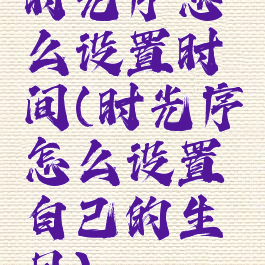 时光序怎
么设置时
间(时光序
怎么设置
自己的生
日)